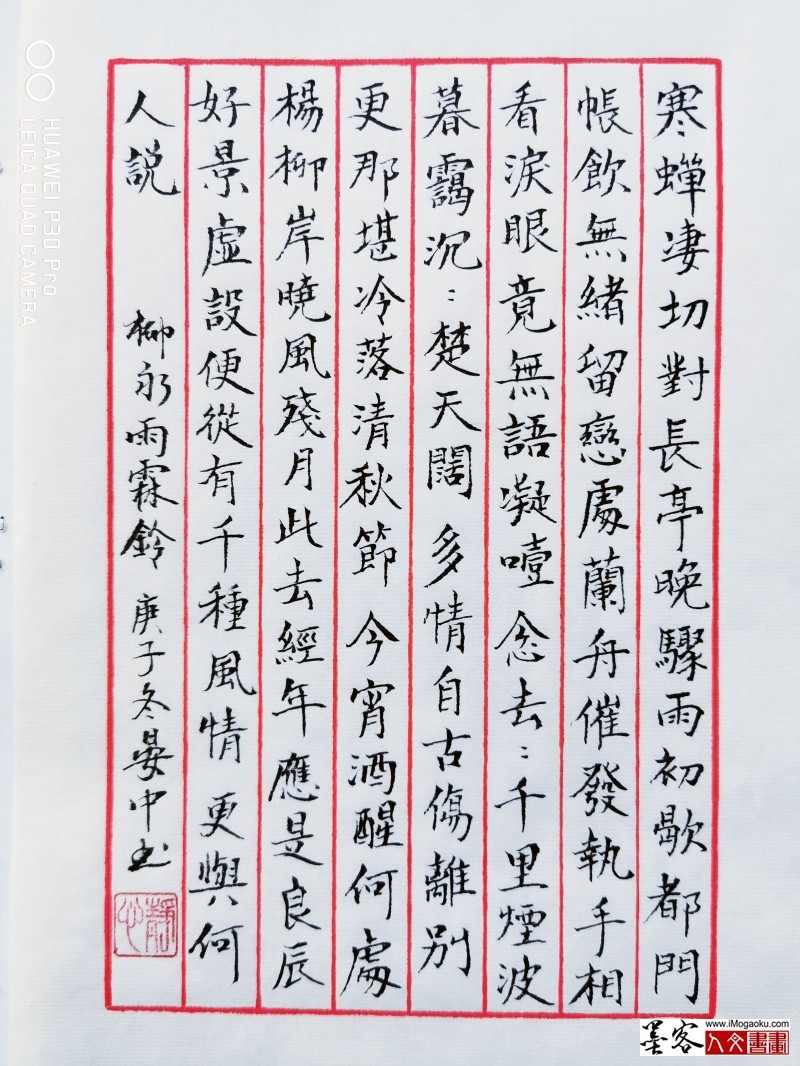 寒蟬凄切對長亭晚驟雨初歇都門
帳飲無緒留戀處蘭舟催發執手相
看淚眼竟無語凝噎念去:千里煙波
暮靄沉:楚天闊多情自古傷離別
更那堪冷落清秋節今宵酒醒何處
楊柳岸曉風殘月此去經年應是良辰
好景虛設便從有千種風情更與何
人說
柳永雨霖鈴 庚子冬晏中书
靜心
HUAWEI P30 Pro
LEICA QUAD CAMERA
墨客
www.iMogaoku.com
人文書畫